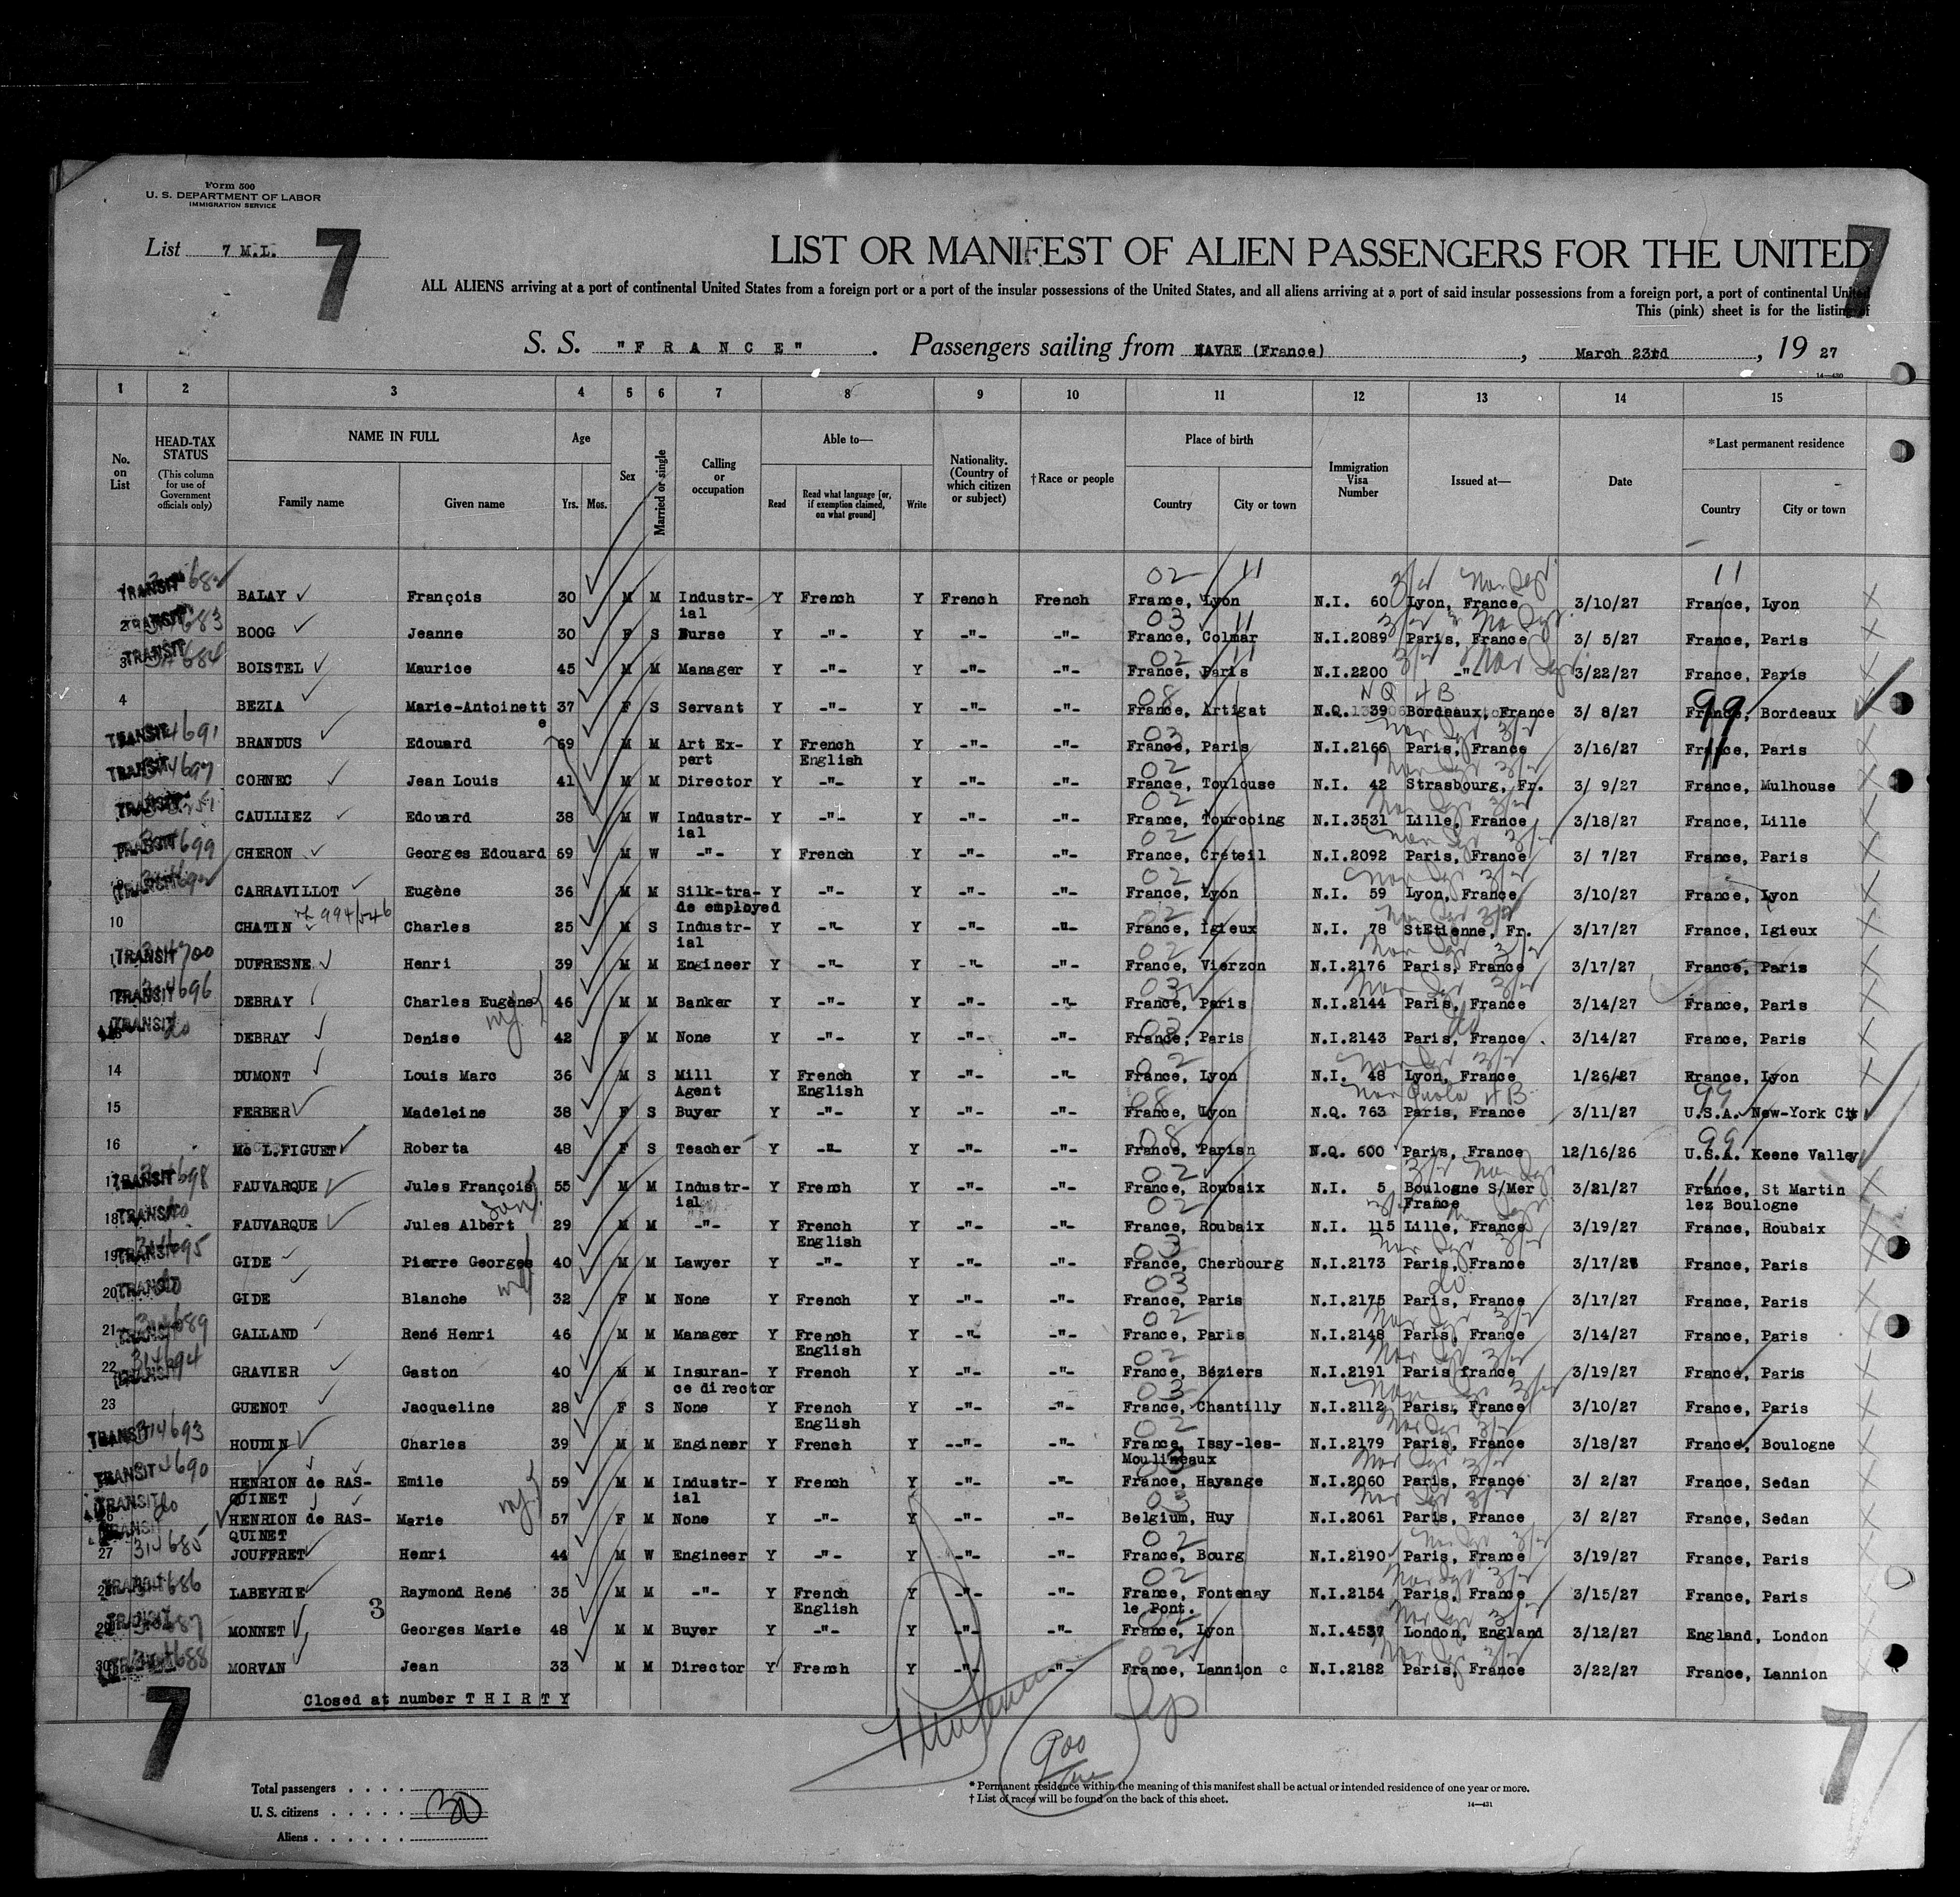 Form 500
U. S. DEPARTMENT OF LABOR
IMMIGRATION SERVICE
List 7 M.L. 7
LIST OR MANIFEST OF ALIEN PASSENGERS FOR THE UNITED 7
ALL ALIENS arriving at a port of continental United States from a foreign port or a port of the insular possessions of the United States, and all aliens arriving at a port of said insular possessions from a foreign port, a port of continental United
This (pink) sheet is for the listing of
S. S. "FRANCE". Passengers sailing from HAVRE (France), March 23rd, 19 27
14-430
1 2 3 4 5 6 7 8 9 10 11 12 13 14 15
No. on List
HEAD-TAX STATUS (This column for use of Government officials only)
NAME IN FULL Family name Given name
Age Yrs. Mos.
Sex
Married or single
Calling or occupation
Able to— Read Read what language [or, if exemption claimed, on what ground] Write
Nationality. (Country of which citizen or subject)
†Race or people
Place of birth Country City or town
Immigration Visa Number
Issued at—
Date
*Last permanent residence Country City or town
TRANSIT BALAY François 30 M M Industrial Y French Y French French France, Lyon N.I. 60 Lyon, France 3/10/27 France, Lyon
2 TRANSIT BOOG Jeanne 30 F S Nurse Y -"- Y -"- -"- France, Colmar N.I.2089 Paris, France 3/ 5/27 France, Paris
3 TRANSIT BOISTEL Maurice 45 M M Manager Y -"- Y -"- -"- France, Paris N.I.2200 -"- 3/22/27 France, Paris
4 BEZIA Marie-Antoinette 37 F S Servant Y -"- Y -"- -"- France, Artigat N.Q. 39 Bordeaux, France 3/ 8/27 France, Bordeaux
TRANSIT BRANDUS Edouard 69 M M Art Expert Y French English Y -"- -"- France, Paris N.I.2166 Paris, France 3/16/27 France, Paris
TRANSIT CORNEC Jean Louis 41 M M Director Y -"- Y -"- -"- France, Toulouse N.I. 42 Strasbourg, Fr. 3/ 9/27 France, Mulhouse
TRANSIT CAULLIEZ Edouard 38 M W Industrial Y -"- Y -"- -"- France, Tourcoing N.I.3531 Lille, France 3/18/27 France, Lille
TRANSIT CHERON Georges Edouard 69 M W -"- Y French Y -"- -"- France, Créteil N.I.2092 Paris, France 3/ 7/27 France, Paris
TRANSIT CARRAVILLOT Eugène 36 M M Silk-trade employed Y -"- Y -"- -"- France, Lyon N.I. 59 Lyon, France 3/10/27 France, Lyon
10 CHATIN 994/546 Charles 25 M S Industrial Y -"- Y -"- -"- France, Igieux N.I. 78 StEtienne, Fr. 3/17/27 France, Igieux
TRANSIT DUFRESNE Henri 39 M M Engineer Y -"- Y -"- -"- France, Vierzon N.I.2176 Paris, France 3/17/27 France, Paris
TRANSIT DEBRAY Charles Eugène 46 M M Banker Y -"- Y -"- -"- France, Paris N.I.2144 Paris, France 3/14/27 France, Paris
TRANSIT do DEBRAY Denise 42 F M None Y -"- Y -"- -"- France, Paris N.I.2143 Paris, France 3/14/27 France, Paris
14 DUMONT Louis Marc 36 M S Mill Agent Y French English Y -"- -"- France, Lyon N.I. 48 Lyon, France 1/26/27 France, Lyon
15 FERBER Madeleine 38 F S Buyer Y -"- Y -"- -"- France, Lyon N.Q. 763 Paris, France 3/11/27 U.S.A. New-York City
16 Mc L.FIGUET Roberta 48 F S Teacher Y -"- Y -"- -"- France, Parisn N.Q. 600 Paris, France 12/16/26 U.S.A. Keene Valley
17 TRANSIT FAUVARQUE Jules François 55 M M Industrial Y French Y -"- -"- France, Roubaix N.I. 5 Boulogne S/Mer France 3/21/27 France, St Martin lez Boulogne
18 TRANSIT FAUVARQUE Jules Albert 29 M M -"- Y French English Y -"- -"- France, Roubaix N.I. 115 Lille, France 3/19/27 France, Roubaix
19 TRANSIT GIDE Pierre Georges 40 M M Lawyer Y -"- Y -"- -"- France, Cherbourg N.I.2173 Paris, France 3/17/27 France, Paris
20 TRANSIT GIDE Blanche 32 F M None Y French Y -"- -"- France, Paris N.I.2175 Paris, France 3/17/27 France, Paris
21 GALLAND René Henri 46 M M Manager Y French English Y -"- -"- France, Paris N.I.2148 Paris, France 3/14/27 France, Paris
22 314694 GRAVIER Gaston 40 M M Insurance director Y French Y -"- -"- France, Béziers N.I.2191 Paris france 3/19/27 France, Paris
23 GUENOT Jacqueline 28 F S None Y French English Y -"- -"- France, Chantilly N.I.2112 Paris, France 3/10/27 France, Paris
TRANSIT 314693 HOUDIN Charles 39 M M Engineer Y French Y -"- -"- France, Issy-les-Moulineaux N.I.2179 Paris, France 3/18/27 France, Boulogne
TRANSIT HENRION de RASQUINET Emile 59 M M Industrial Y French Y -"- -"- France, Hayange N.I.2060 Paris, France 3/ 2/27 France, Sedan
TRANSIT do HENRION de RASQUINET Marie 57 F M None Y -"- Y -"- -"- Belgium, Huy N.I.2061 Paris, France 3/ 2/27 France, Sedan
27 314685 JOUFFRET Henri 44 M W Engineer Y -"- Y -"- -"- France, Bourg N.I.2190 Paris, France 3/19/27 France, Paris
TRANSIT LABEYRIE Raymond René 35 M M -"- Y French English Y -"- -"- France, Fontenay le Pont. N.I.2154 Paris, France 3/15/27 France, Paris
29 MONNET Georges Marie 48 M M Buyer Y -"- Y -"- -"- France, Lyon N.I.4537 London, England 3/12/27 England, London
30 MORVAN Jean 33 M M Director Y French Y -"- -"- France, Lannion N.I.2182 Paris, France 3/22/27 France, Lannion
Closed at number THIRTY
7 7
Total passengers
U. S. citizens 30
Aliens
* Permanent residence within the meaning of this manifest shall be actual or intended residence of one year or more.
† List of races will be found on the back of this sheet.
14-431